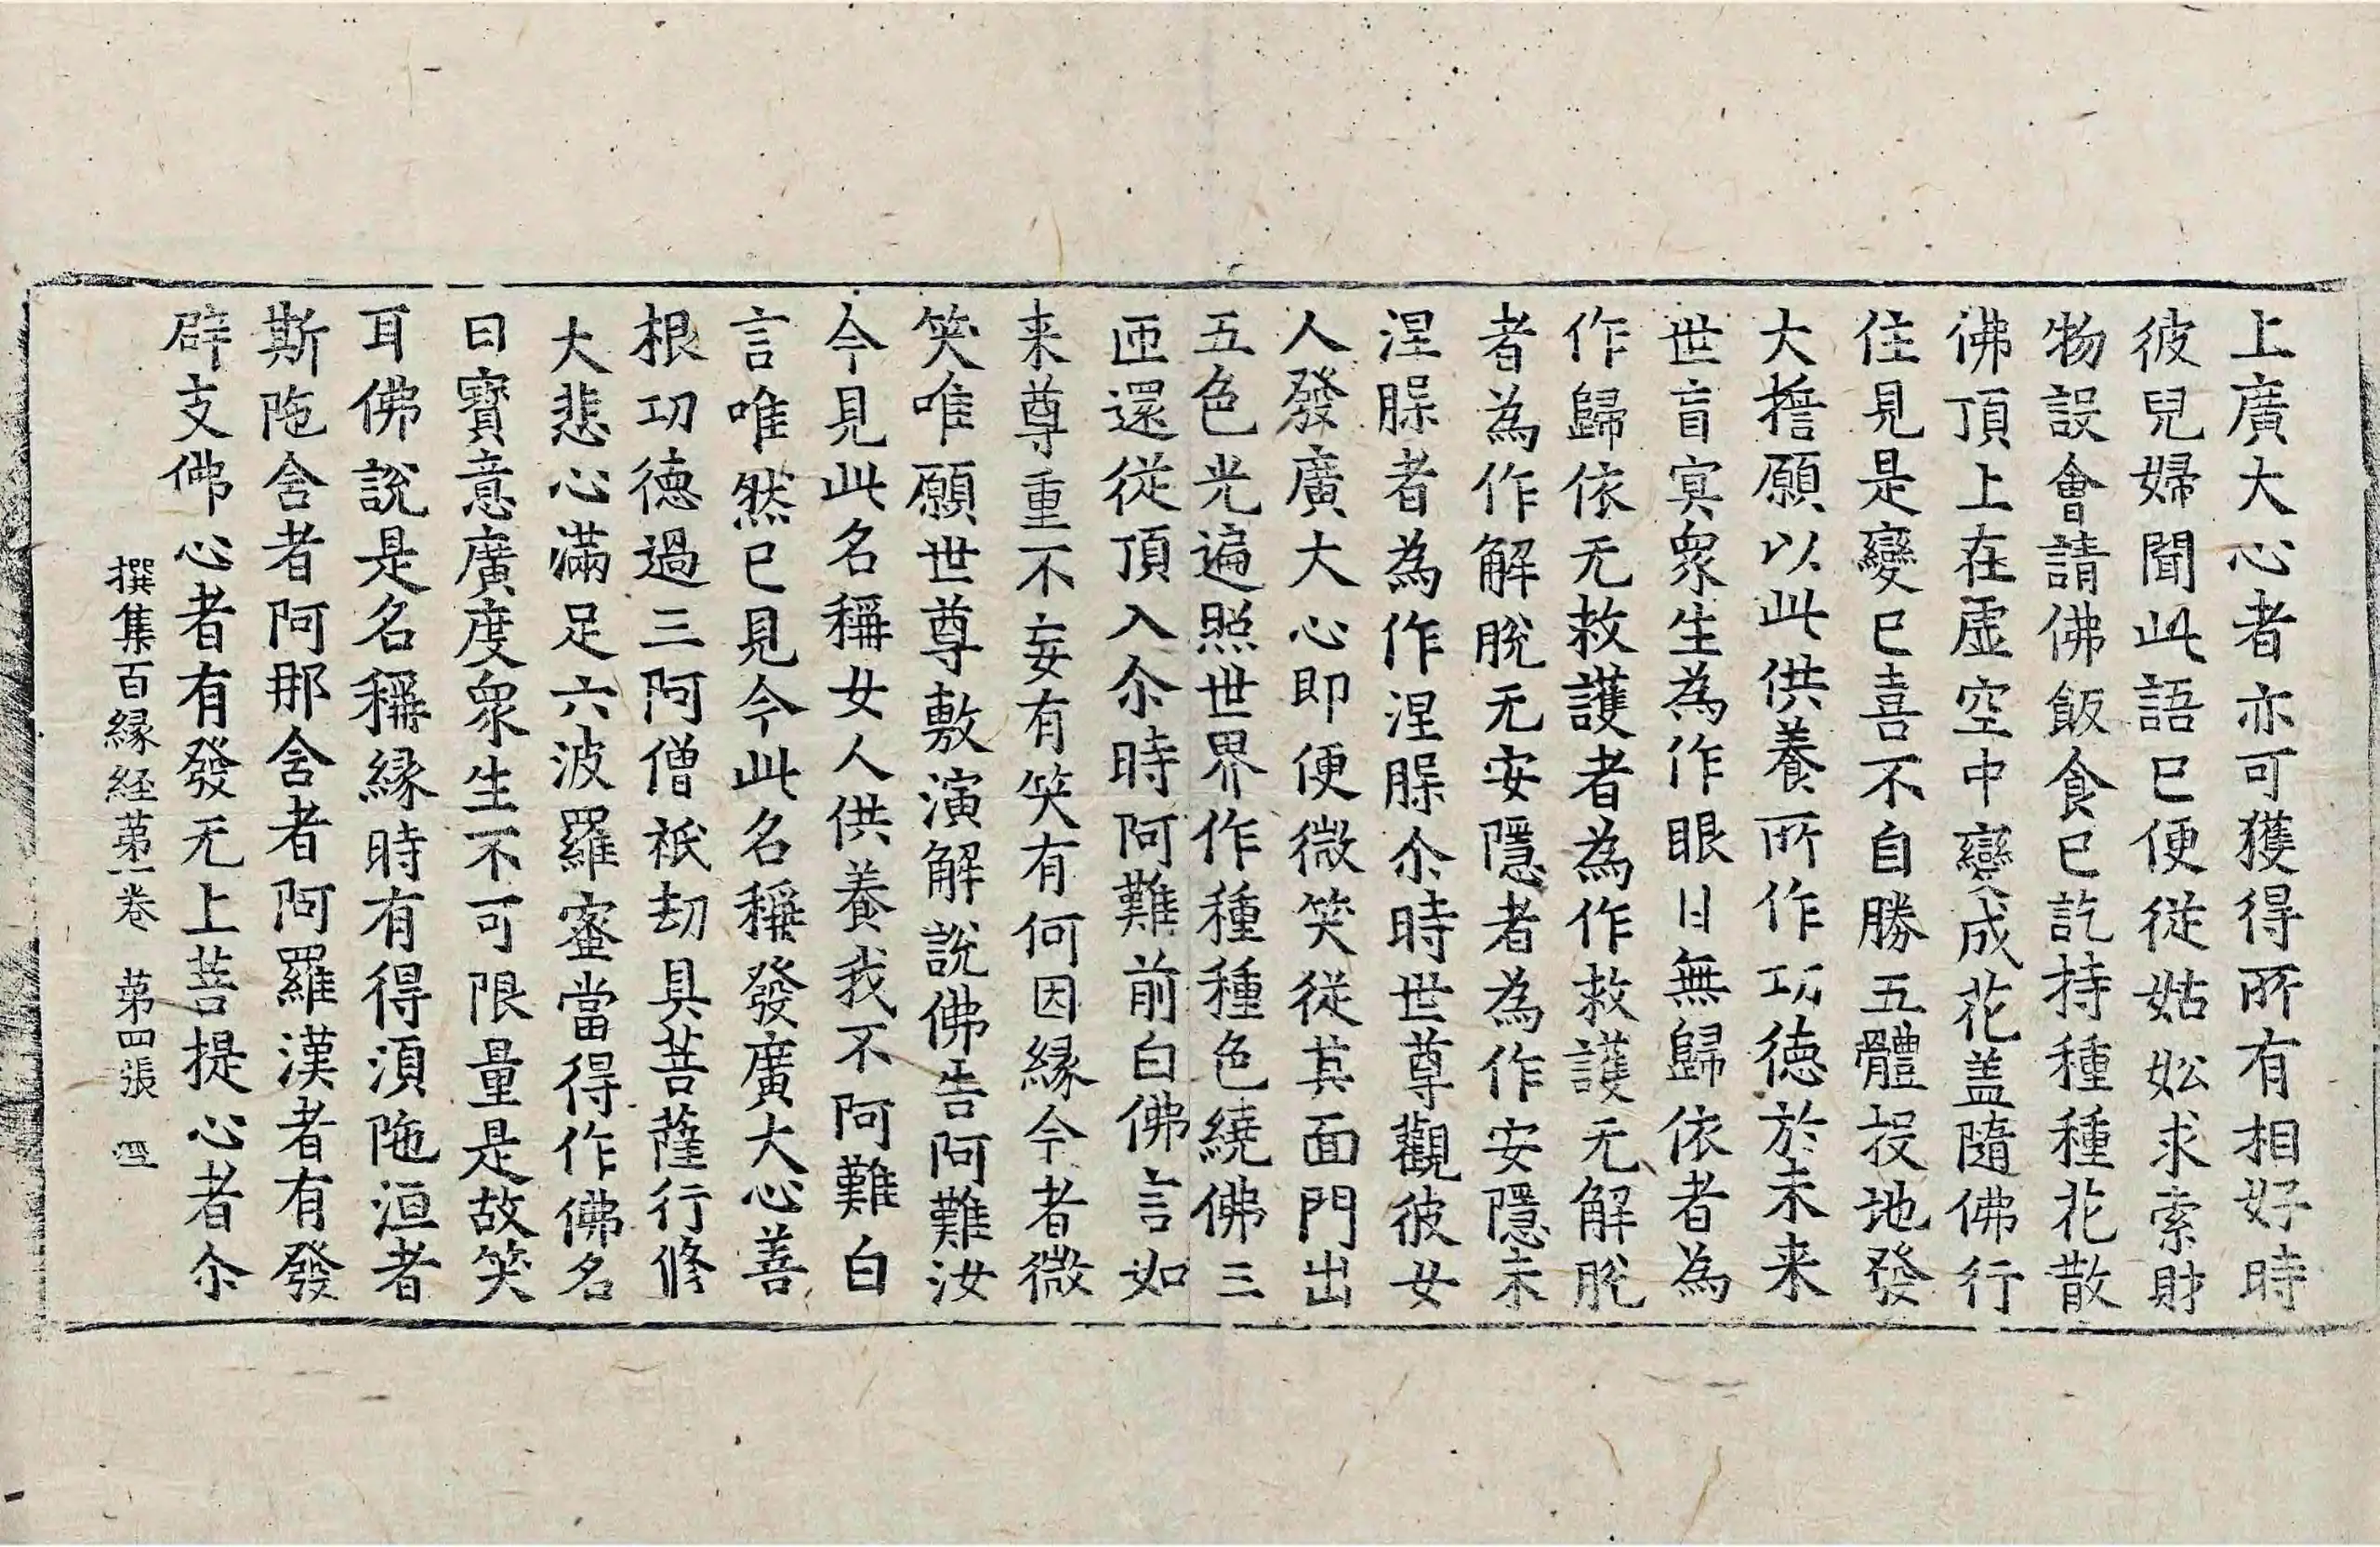 上廣大心者亦可獲得所有相好時
彼兒婦聞此語已便從姑妐求索財
物設會請佛飯食已訖持種種花散
佛頂上在虛空中變成花盖隨佛行
住見是變已喜不自勝五體投地發
大擔願以此供養所作功德於未来
世盲冥衆生為作眼目無歸依者為
作歸依无救護者為作救護无解脫
者為作解脫无安隱者為作安隱未
涅槃者為作涅槃尒時世尊觀彼女
人發廣大心即便微笑從其面門出
五色光遍照世界作種種色繞佛三
匝還從頂入尒時阿難前白佛言如
来尊重不妄有笑有何因緣今者微
笑唯願世尊敷演解說佛告阿難汝
今見此名稱女人供養我不阿難白
言唯然已見今此名稱發廣大心善
根功德過三阿僧祇劫具菩薩行修
大悲心滿足六波羅蜜當得作佛名
曰寶意廣度衆生不可限量是故笑
耳佛說是名稱緣時有得湏陁洹者
斯陁含者阿那含者阿羅漢者有發
辟支佛心者有發无上菩提心者尒
撰集百緣経第一卷 第四張 四